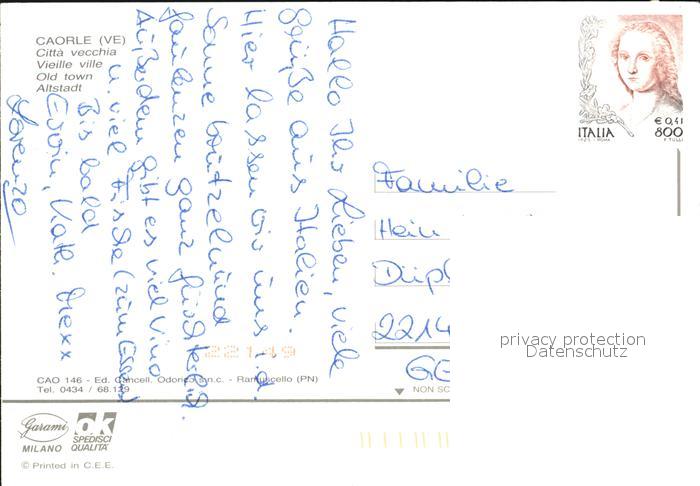 CAORLE (VE)
Città vecchia
Vieille ville
Old town
Altstadt
Hallo Ihr Lieben, viele
Grüße aus Italien.
Hier lassen wir uns i.d.
Sonne brutzeln und
faulenzen ganz fürchterlich.
Außerdem gibt es viel Vino
u. viel Fische (zum Essen)
Bis bald
Erwin, Kath.
Lorenzo
€ 0,41
ITALIA 800
Familie
Hein
Düpl
2214
GE
privacy protection
Datenschutz
22 1 19
CAO 146 - Ed. Cancell. Odorico s.n.c. - Ramuscello (PN)
Tel. 0434 / 68.129
NON SC
Garami
MILANO
ok
SPEDISCI
QUALITÀ
© Printed in C.E.E.